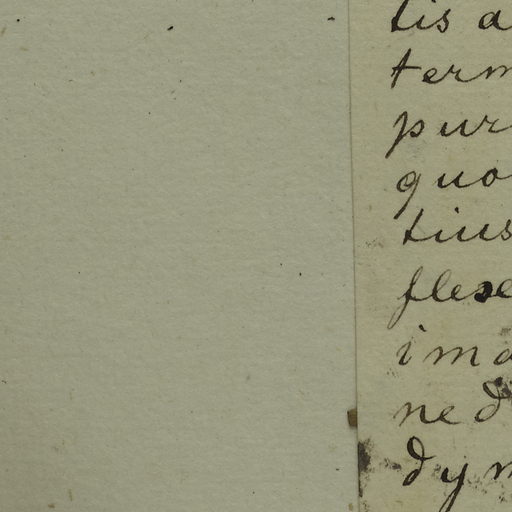 tis a
term
pur
quo
tius
flexe
ima
ned
dym